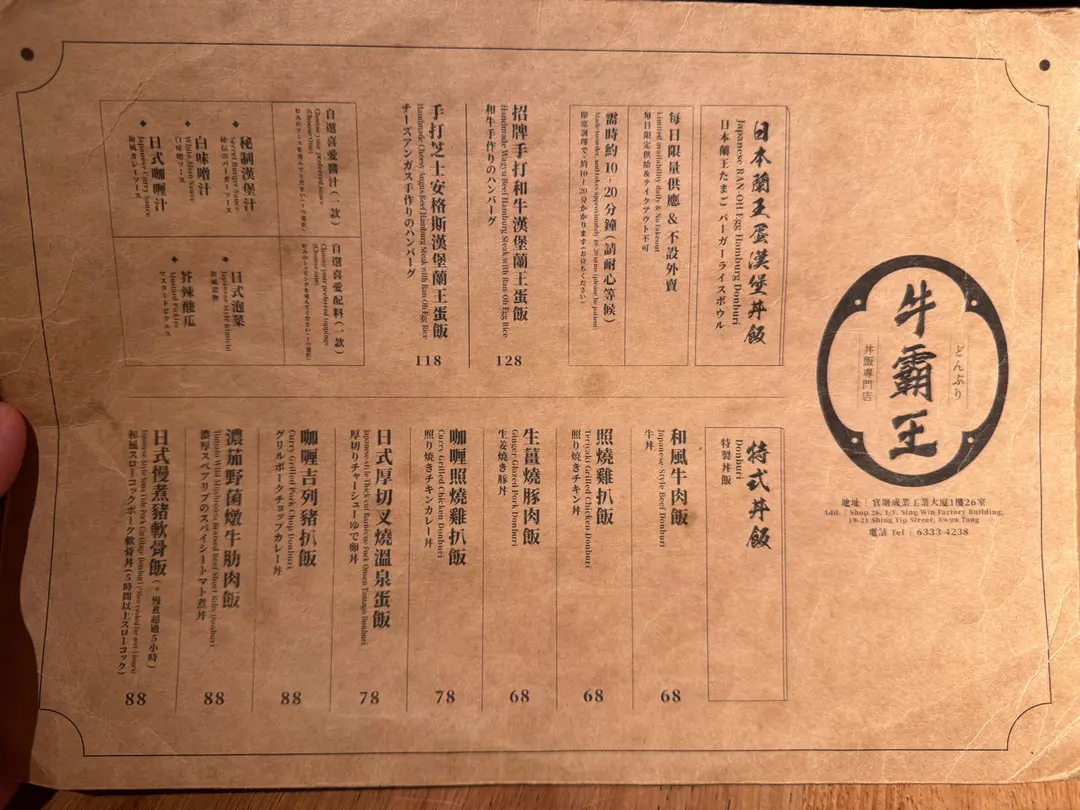 牛霸王
どんぶり
丼飯專門店
地址｜官塘成業工業大廈1樓26室
Add.｜Shop 26, 1/F, Sing Win Factory Building,
19-21 Shing Yip Street, Kwun Tong
電話 Tel｜6333 4238
日本蘭王蛋漢堡丼飯
Japanese RAN-OH Egg Hamburg Donburi
日本蘭王たまご バーガーライスボウル
每日限量供應＆不設外賣
Limited availability daily & No takeout
每日限定供給＆テイクアウト不可
需時約10-20分鐘（請耐心等候）
Made to order, and takes approximately 10-20 mins (please be patient)
即席調理で、約10~20分かかります(お待ちください)
招牌手打和牛漢堡蘭王蛋飯
Handmade Wagyu Beef Hamburg Steak with Ran-Oh Egg Rice
和牛手作りのハンバーグ
128
手打芝士安格斯漢堡蘭王蛋飯
Handmade Cheesy Angus Beef Hamburg Steak with Ran-Oh Egg Rice
チーズアンガス手作りのハンバーグ
118
自選喜愛醬汁（一款）
Choose your preferred sauce
(Choose one)
◆ 秘制漢堡汁
Secret Burger Sauce
秘伝のバーガーソース
◆ 白味噌汁
White Miso Sauce
白味噌ソース
◆ 日式咖喱汁
Japanese Curry Sauce
和風カレーソース
自選喜愛配料（一款）
Choose your preferred toppings
(Choose one)
◆ 日式泡菜
Japanese-style Kimchi
和風漬物
◆ 芥辣酸瓜
Mustard Pickles
マスタードピクルス
特式丼飯
Donburi
特製丼飯
和風牛肉飯
Japanese Style Beef Donburi
牛丼
68
照燒雞扒飯
Teriyaki Grilled Chicken Donburi
照り焼きチキン丼
68
生薑燒豚肉飯
Ginger Glazed Pork Donburi
生姜焼き豚丼
68
咖喱照燒雞扒飯
Curry Grilled Chicken Donburi
照り焼きチキンカレー丼
78
日式厚切叉燒溫泉蛋飯
Japanese style Thick-cut Barbecue Pork Onsen Tamago Donburi
厚切りチャーシューゆで卵丼
78
咖喱吉列豬扒飯
Curry Grilled Pork Chop Donburi
グリルポークチョップカレー丼
88
濃茄野菌燉牛肋肉飯
Tomato Wild Mushroom Braised Beef Short Ribs Donburi
濃厚スペアリブのスパイシートマト煮丼
88
日式慢煮豬軟骨飯（*慢煮超過5小時）
Japanese Style Slow Cooked Pork Cartilage Donburi (*Slow cooked for over 5 hours)
和風スローコックポーク軟骨丼(5時間以上スローコック)
88